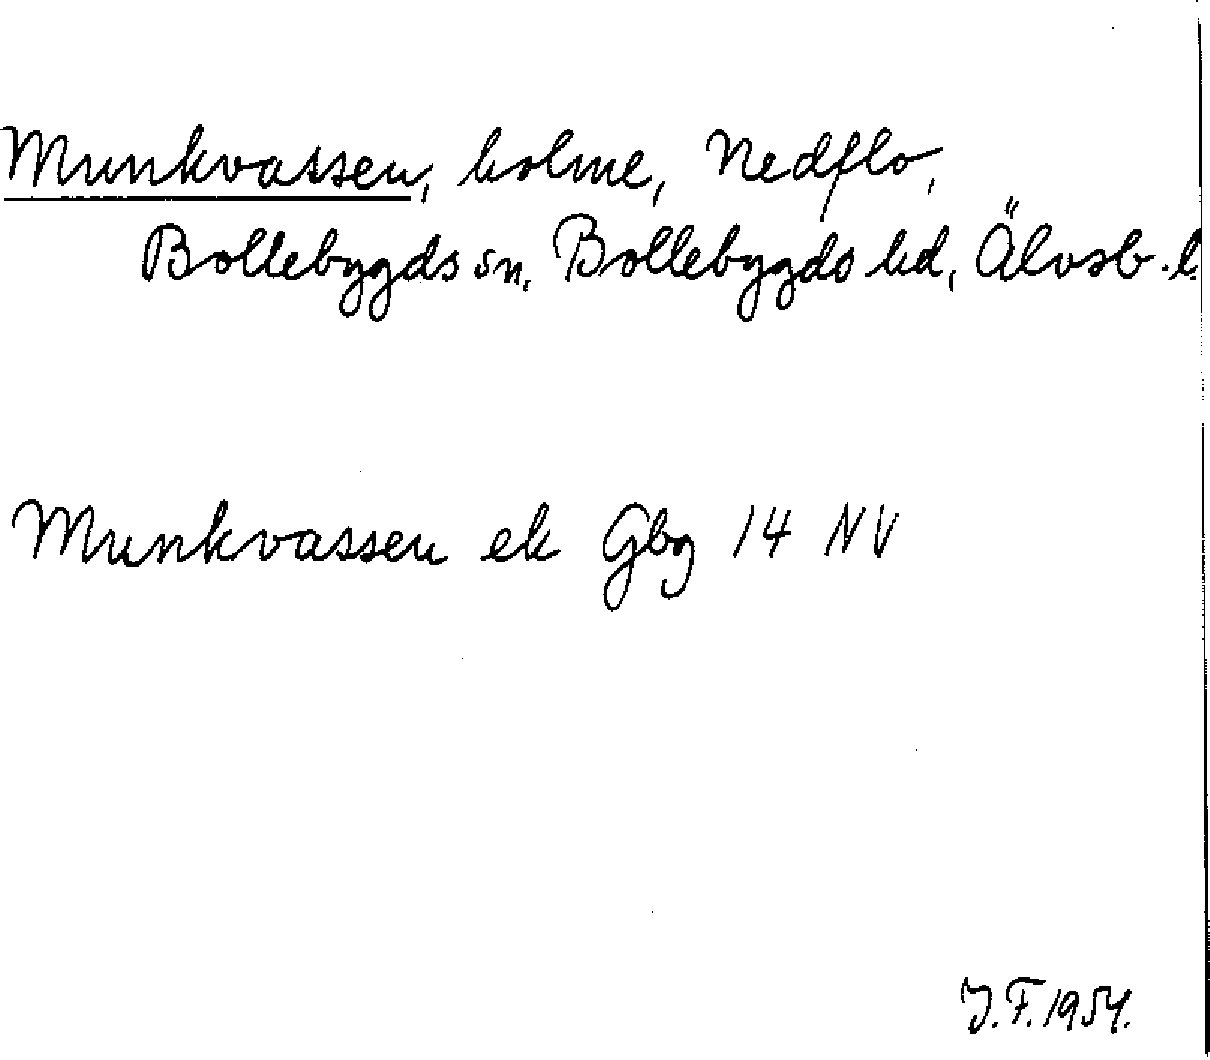 Munkvassen, holme, Nedflo,
Bollebygds sn, Bollebygds hd, Älvsb. l.
Munkvassen ek Gbg 14 NV
J.F. 1954.